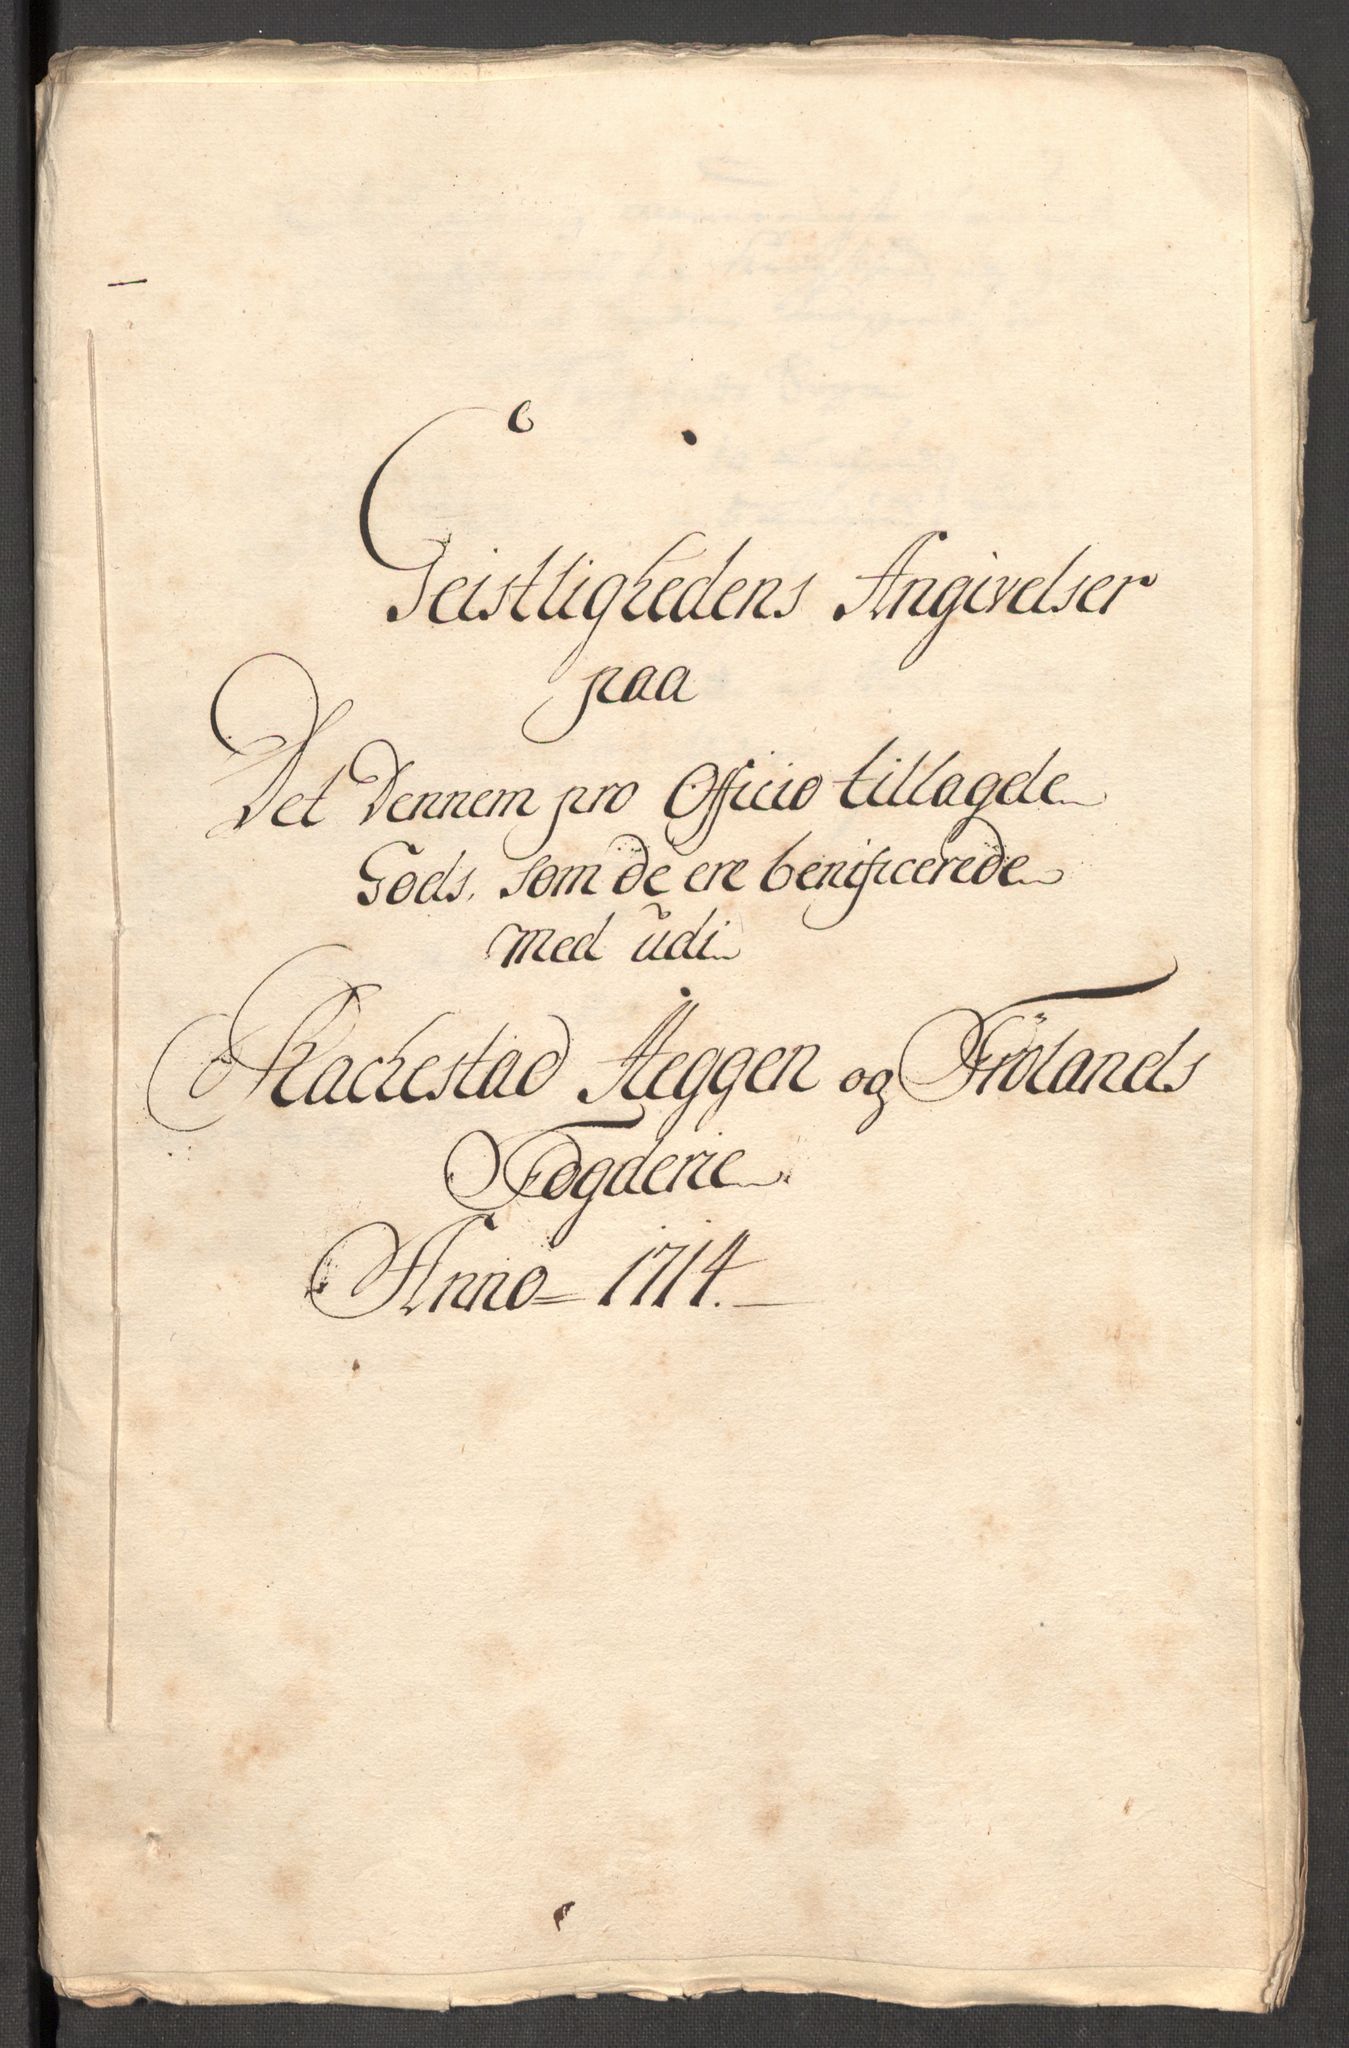 Geistlighedens Angivelser
paa
Det Dennem pro Officio tillagde
Gods, som de ere benificerede
med udi
Rachestad Heggen og Frölands
Fogderie
Anno = 1714.